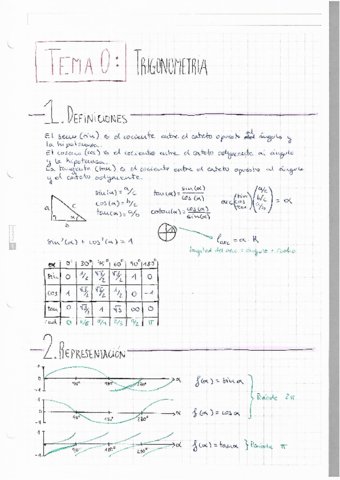 TEMA 0: TRIGONOMETRIA
1. DEFINICIONES
El seno (sin) es el cociente entre el cateto opuesto al ángulo y
la hipotenusa.
El coseno (cos) es el cociente entre el cateto adyacente al ángulo
y la hipotenusa.
La tangente (tan) es el cociente entre el cateto opuesto al ángulo
y el cateto adyacente.
sin(α) = a/c
cos(α) = b/c
tan(α) = a/b
tan(α) = sin(α)/cos(α)
cotan(α) = cos(α)/sin(α)
arc (sin cos tan) (a/c b/c a/b) = α
c
a
α
b
sin²(α) + cos²(α) = 1
longitud del arco = ángulo · radio
α 0° 30° 45° 60° 90° 180°
sin 0 1/2 √2/2 √3/2 1 0
cos 1 √3/2 √2/2 1/2 0 -1
tan 0 √3/3 1 √3 ∞ 0
rad 0 π/6 π/4 π/3 π/2 π
2. REPRESENTACIÓN
90° 180° α
f(α) = sin α
90° 180° α
f(α) = cos α
Periodo 2π
90° 180° α
f(α) = tan α
Periodo π